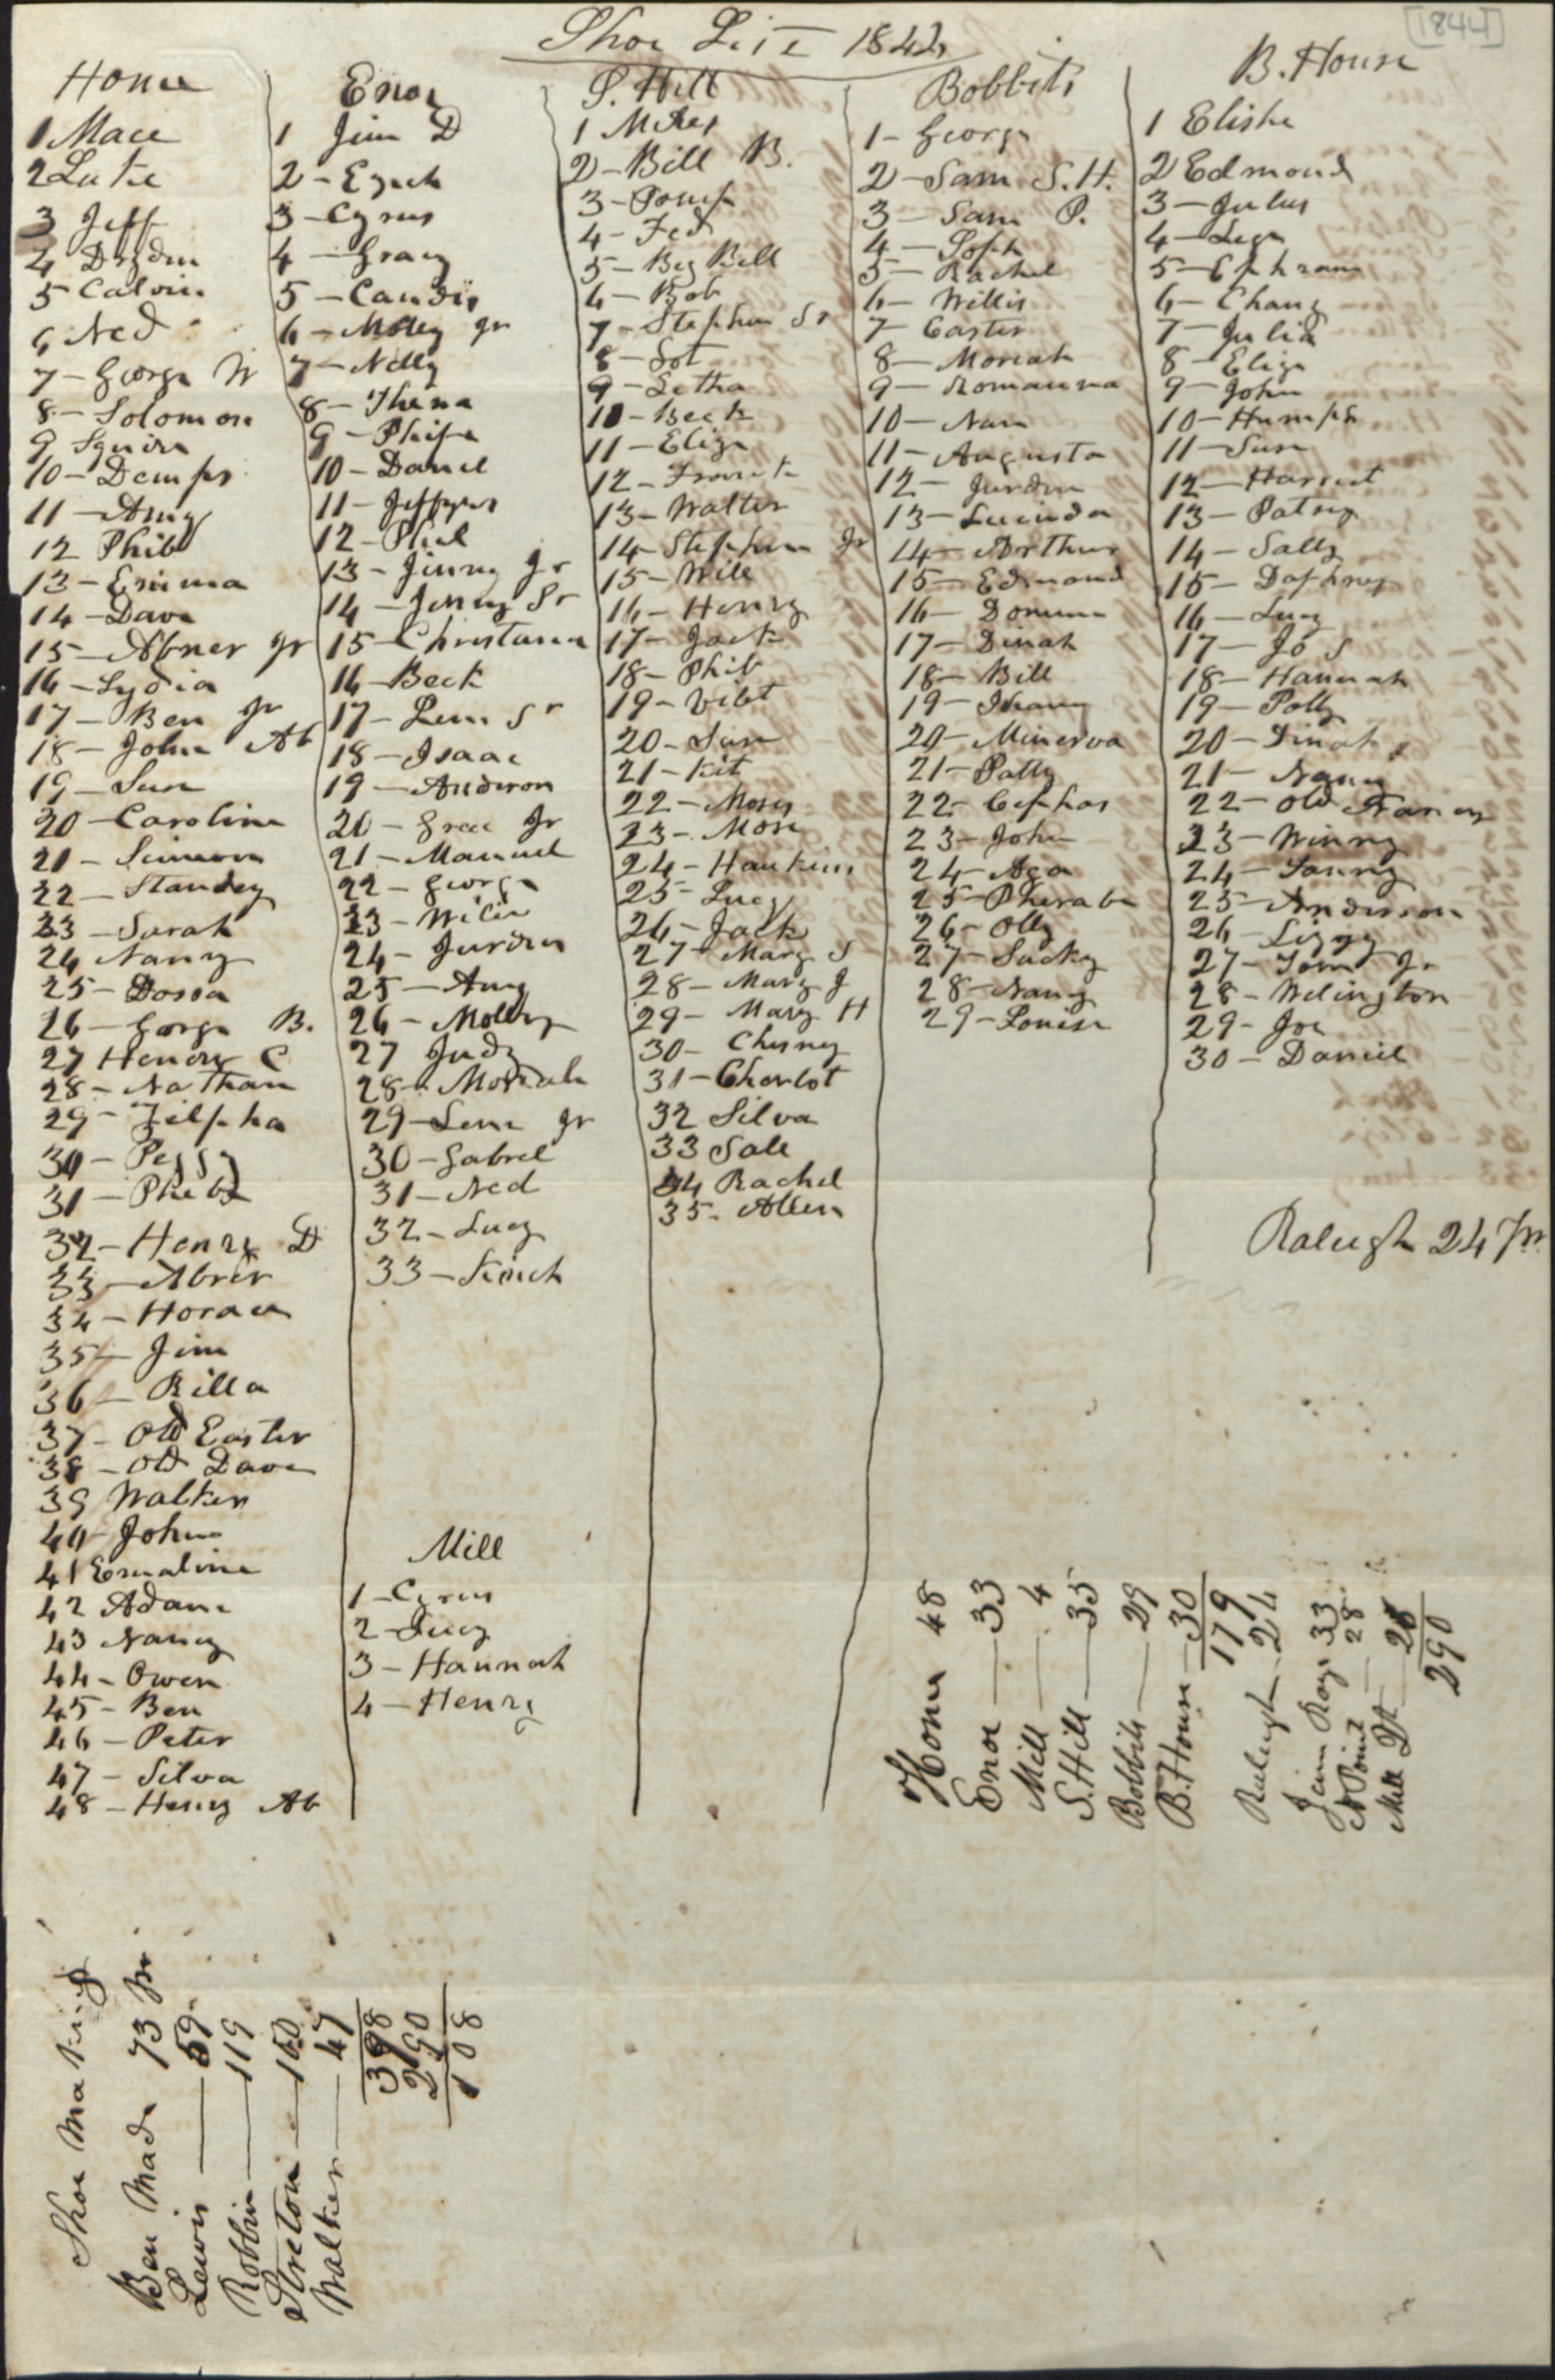 Shoe List 1842
[1844]
Home
1 Mace
2 Lutie
3 Jeff
4 Dryden
5 Calvin
6 Ned
7 - George W
8 - Solomon
9 Squire
10 - Demps
11 - Amy
12 Phib
13 - Emma
14 - Dave
15 - Abner Jr
16 - Lydia
17 - Ben Jr
18 - John Ab
19 - Sue
20 - Caroline
21 - Simeon
22 - Standey
23 - Sarah
24 Nancy
25 - Dossa
26 - George B.
27 Henery C
28 - Nathan
29 - Zilpha
30 - Peggy
31 - Phebe
32 - Henry D
33 - Abner
34 - Horace
35 - Jim
36 - Rilla
37 - Old Easter
38 - Old Dave
39 Walker
40 - John
41 Emaline
42 Adam
43 Nancy
44 - Owen
45 - Ben
46 - Peter
47 - Silva
48 - Henry Ab
Enoe
1 Jim D
2 - Eyeck
3 - Cyrus
4 - Gracy
5 - Candis
6 - Molley Jr
7 - Nelly
8 - Thena
9 - Phife
10 - Daniel
11 - Jefferys
12 - Phil
13 - Jinny Jr
14 - Jenny Sr
15 - Christana
16 - Beck
17 - Lem Sr
18 - Isaac
19 - Anderson
20 - Grace Jr
21 - Manuel
22 - George
23 - Wilie
24 - Jurden
25 - Amy
26 - Molley
27 Judy
28 - Moriah
29 - Lem Jr
30 - Gabrel
31 - Ned
32 - Lucy
33 - Kinch
Mill
1 - Cyrus
2 - Lucy
3 - Hannah
4 - Henry
S. Hill
1 Mikes
2 - Bill B.
3 - Pomp
4 - Fed
5 - Big Bell
6 - Bob
7 - Stephen Sr
8 - Sol
9 - Letha
10 - Beck
11 - Eliza
12 - Frank
13 - Walter
14 - Stephen Jr
15 - Will
16 - Henry
17 - Jack
18 - Phib
19 - Vilet
20 - Sue
21 - Kit
22 - Moses
23 - Mose
24 - Hawkins
25 - Lucy
26 - Jack
27 - Mary S
28 - Mary J
29 - Mary H
30 - Chesney
31 - Charlot
32 Silva
33 Sall
34 Rachel
35 - Allen
Bobbits
1 - George
2 - Sam S.H.
3 - Sam P.
4 - Soph
5 - Rachel
6 - Willis
7 Easter
8 - Moriah
9 - Romanna
10 - Nan
11 - Augusta
12 - Jurden
13 - Lucinda
14 - Arthur
15 - Edmond
16 - Domine
17 - Dinah
18 - Bill
19 - Isham
20 - Minerva
21 - Patty
22 - Cephas
23 - John
24 - Aga
25 - Pheraba
26 - Olly
27 - Sucky
28 - Nancy
29 - Louisa
B. House
1 Elisha
2 Edmond
3 - Julus
4 - Liza
5 - Ephram
6 - Chany
7 - Julia
8 - Eliza
9 - John
10 - Humph
11 - Sue
12 - Harriet
13 - Patsey
14 - Sally
15 - Daphney
16 - Lucy
17 - Jo S
18 - Hannah
19 - Polly
20 - Dinah
21 - Nancy
22 - Old Francy
23 - Winny
24 - Fanny
25 - Anderson
26 Lizzy
27 - Tom Jr
28 - Welington
29 - Joe
30 - Daniel
Raleigh 24 Pr
Home 48
Enoe - 33
Mill - 4
S. Hill - 35
Bobbits - 29
B. House - 30
179
Raleigh - 24
Jim Rays 33
N Point - 28
Mill Qt - 26
290
Shoe Making
Ben Made 73 pr
Lewis - 59
Robbin - 119
Streton - 100
Walker - 47
398
290
108